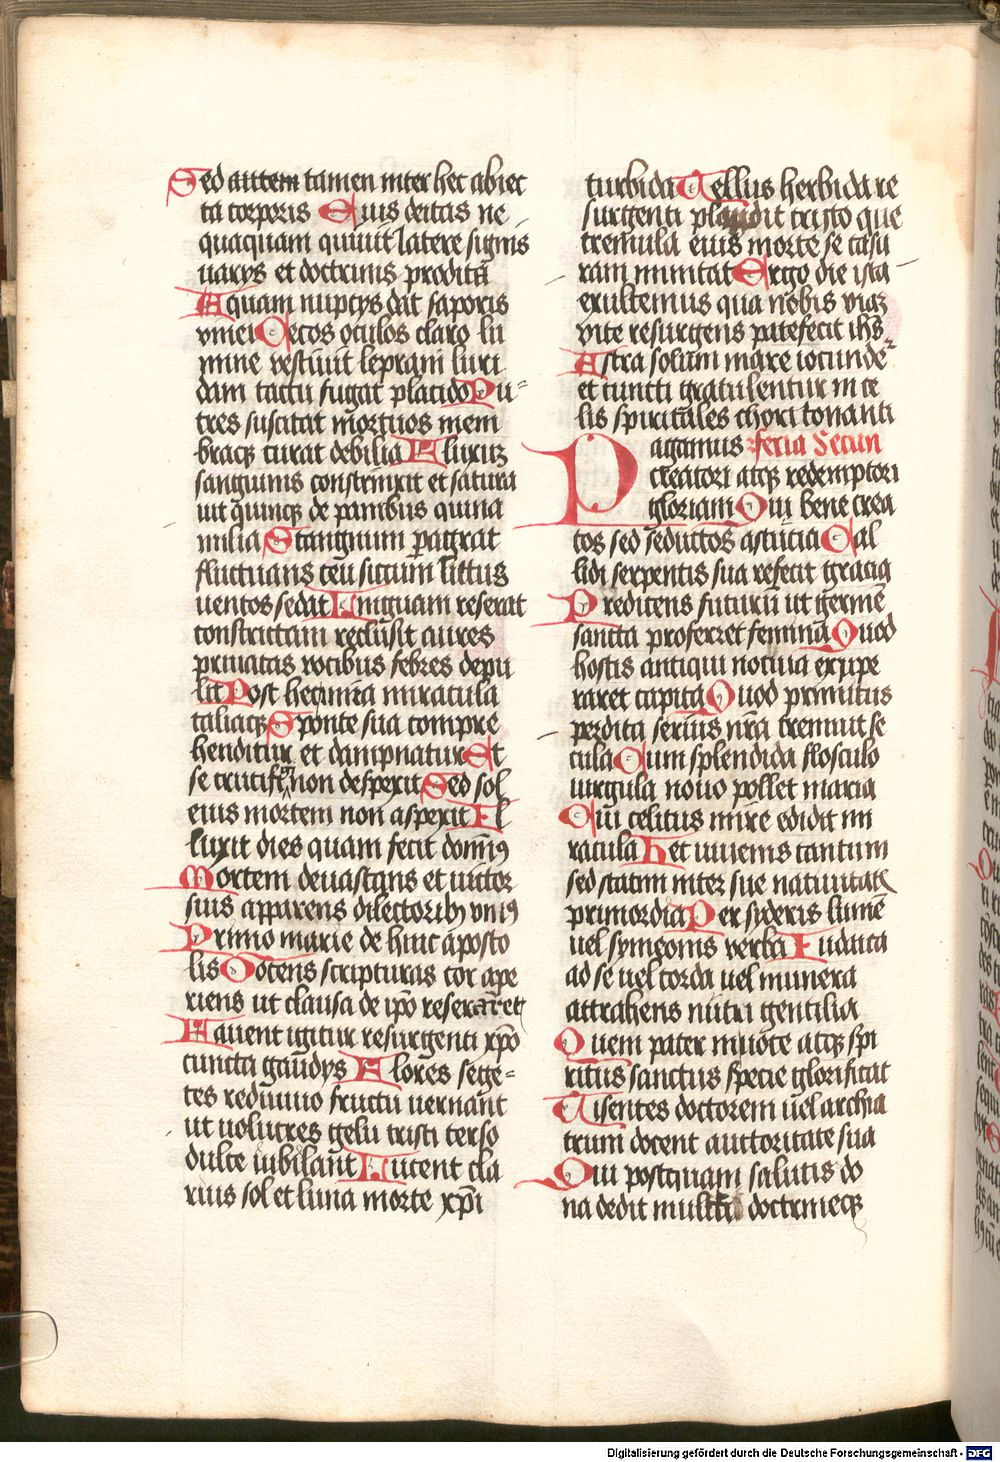 Sed autem tamen inter hec abiec
ta corporis Eius deitas ne
quaquam quiuit latere signis
uarys et doctrinis prodita
Aquam nupcys dat saporis
vinei Cecos oculos claro lu
mine vestiuit lepram luri
dam tactu fugat placido Pu
tres suscitat mortuos mem
bracꝫ curat debilia Fluxuꝫ
sanguinis constrinxit et satura
uit quinqꝫ de panibus quina
milia Stangnum pagrat
fluctuans ceu siccum littus
uentos sedat Linguam reserat
constrictam reclusit aures
priuatas vocibus febres depu
lit Post hec mira miracula
taliacꝫ Sponte sua compre
henditur et dampnatur Et
se crucifigi non despexit Sed sol
eius mortem non aspexit El
luxit dies quam fecit dominꝰ
Mortem deuastans et uictor
suis apparens dilectoribꝫ viuꝰ
Primo marie de hinc aposto
lis Docens scripturas cor ape
riens ut clausa de ip̄o reseraret
Fauent igitur resurgenti xp̄o
cuncta gaudys Flores sege
tes rediuiuo fructu uernant
ut uolucres gelu tristi terso
dulce iubilant Lucent cla
rius sol et luna morte xp̄i
turbida Tellus herbida re
surgenti plaudit cristo que
tremula eius morte se casu
ram minitat Ergo die ista
exultemus qua nobis viaꝫ
vite resurgens patefecit ihs
Astra solum mare iocunde
et cuncti gratulentur in ce
lis spiritales chori tonanti
Pagamus feria Secun
creatori atqꝫ redemptori
gloriam Qui bene crea
tos sed seductos astucia Cal
lidi serpentis sua refecit gracia
Predicens futurū ut germē
sancta proferret femina Quod
hostis antiqui nociua exupe
raret capita Quod primitus
perdita serius nr̄a cernuit se
cula Cum splendida flosculo
uirgula nouo pollet maria
Qui celitus mire edidit mi
racula Het uiuens tantum
sed statim inter sue natiuitatis
primordia Per syderis lumē
uel symeonis verba Euduca
ad se uel corda uel munera
attrahens nutri gentilia
Quem pater in uoce atqꝫ spi
ritus sanctus specie glorificat
Visentes doctorem uel archia
trum docent auctoritate sua
Qui postquam salutis do
na dedit multa doctrineqꝫ
Digitalisierung gefördert durch die Deutsche Forschungsgemeinschaft - DFG